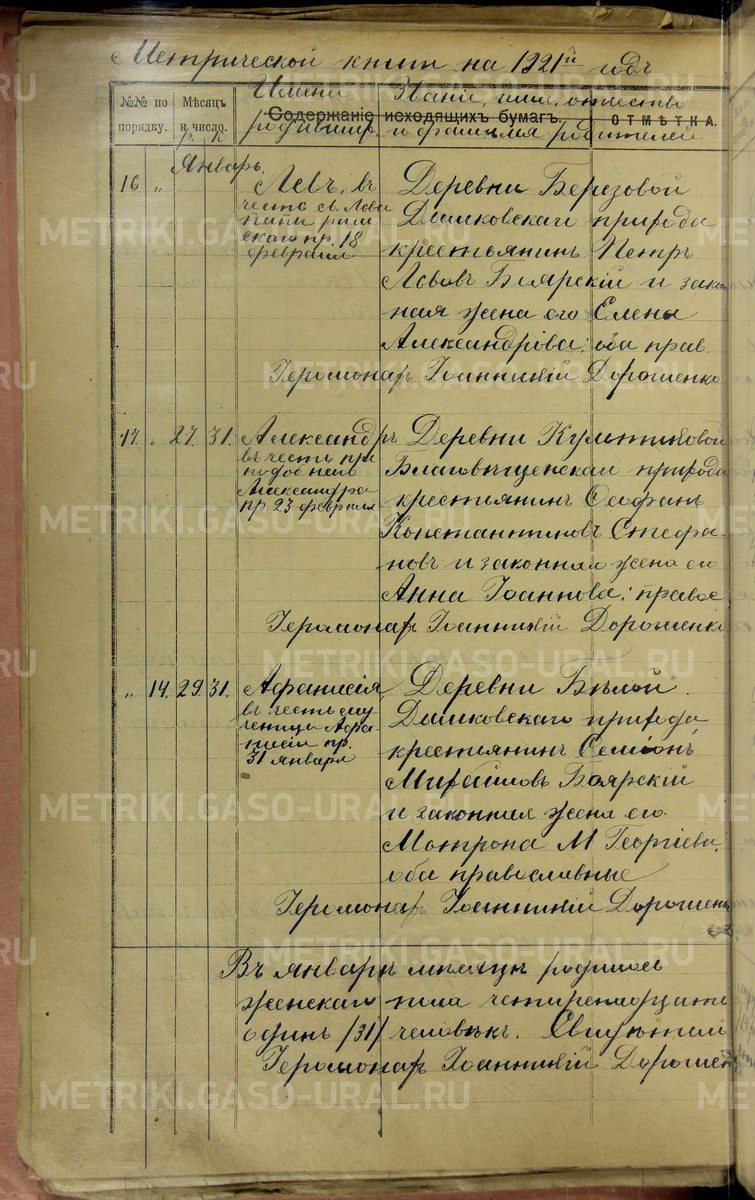 Метрической книги на 1921й годъ
№№ по порядку.
Мѣсяцъ и число.
Имена родившихъ
Званіе, имя, отчество и фамилія родителей
Содержаніе исходящихъ бумагъ.
ОТМѢТКА.
Январь.
16 „ Левъ, въ Деревни Березовой
честь Льва Дашковскаго прихода
папы рим крестьянинъ Петръ
скаго пр. 18 Львовъ Боярскій и закон
февраля ная жена его Елена
Александрова; оба прав.
Іеромонахъ Іоанникій Дорошенко
17. „ 27 31. Александръ Деревни
въ честь пре Благовѣщенской прихода
подобнаго крестиянинъ Феофанъ
Александра Константиновъ Стефа
пр. 23 февраля новъ и законная жена его
Анна Іоаннова; правос
Іеромонахъ Іоанникій Дорошенко
„ 14. 29. 31. Афанасія, Деревни Бѣлой
въ честь му Дашковскаго прихода,
ченицы Афа крестиянинъ Семіонъ
насіи пр. Михайловъ Боярскій
31 января и законная жена его
Матрона М Георгіева;
оба православные
Іеромонахъ Іоанникій Дорошенк
Въ январѣ мѣсяцѣ родилось
женскаго пола
одинъ /31/ человѣкъ.
Іеромонахъ Іоанникій Дорошен
METRIKI.GASO-URAL.RU